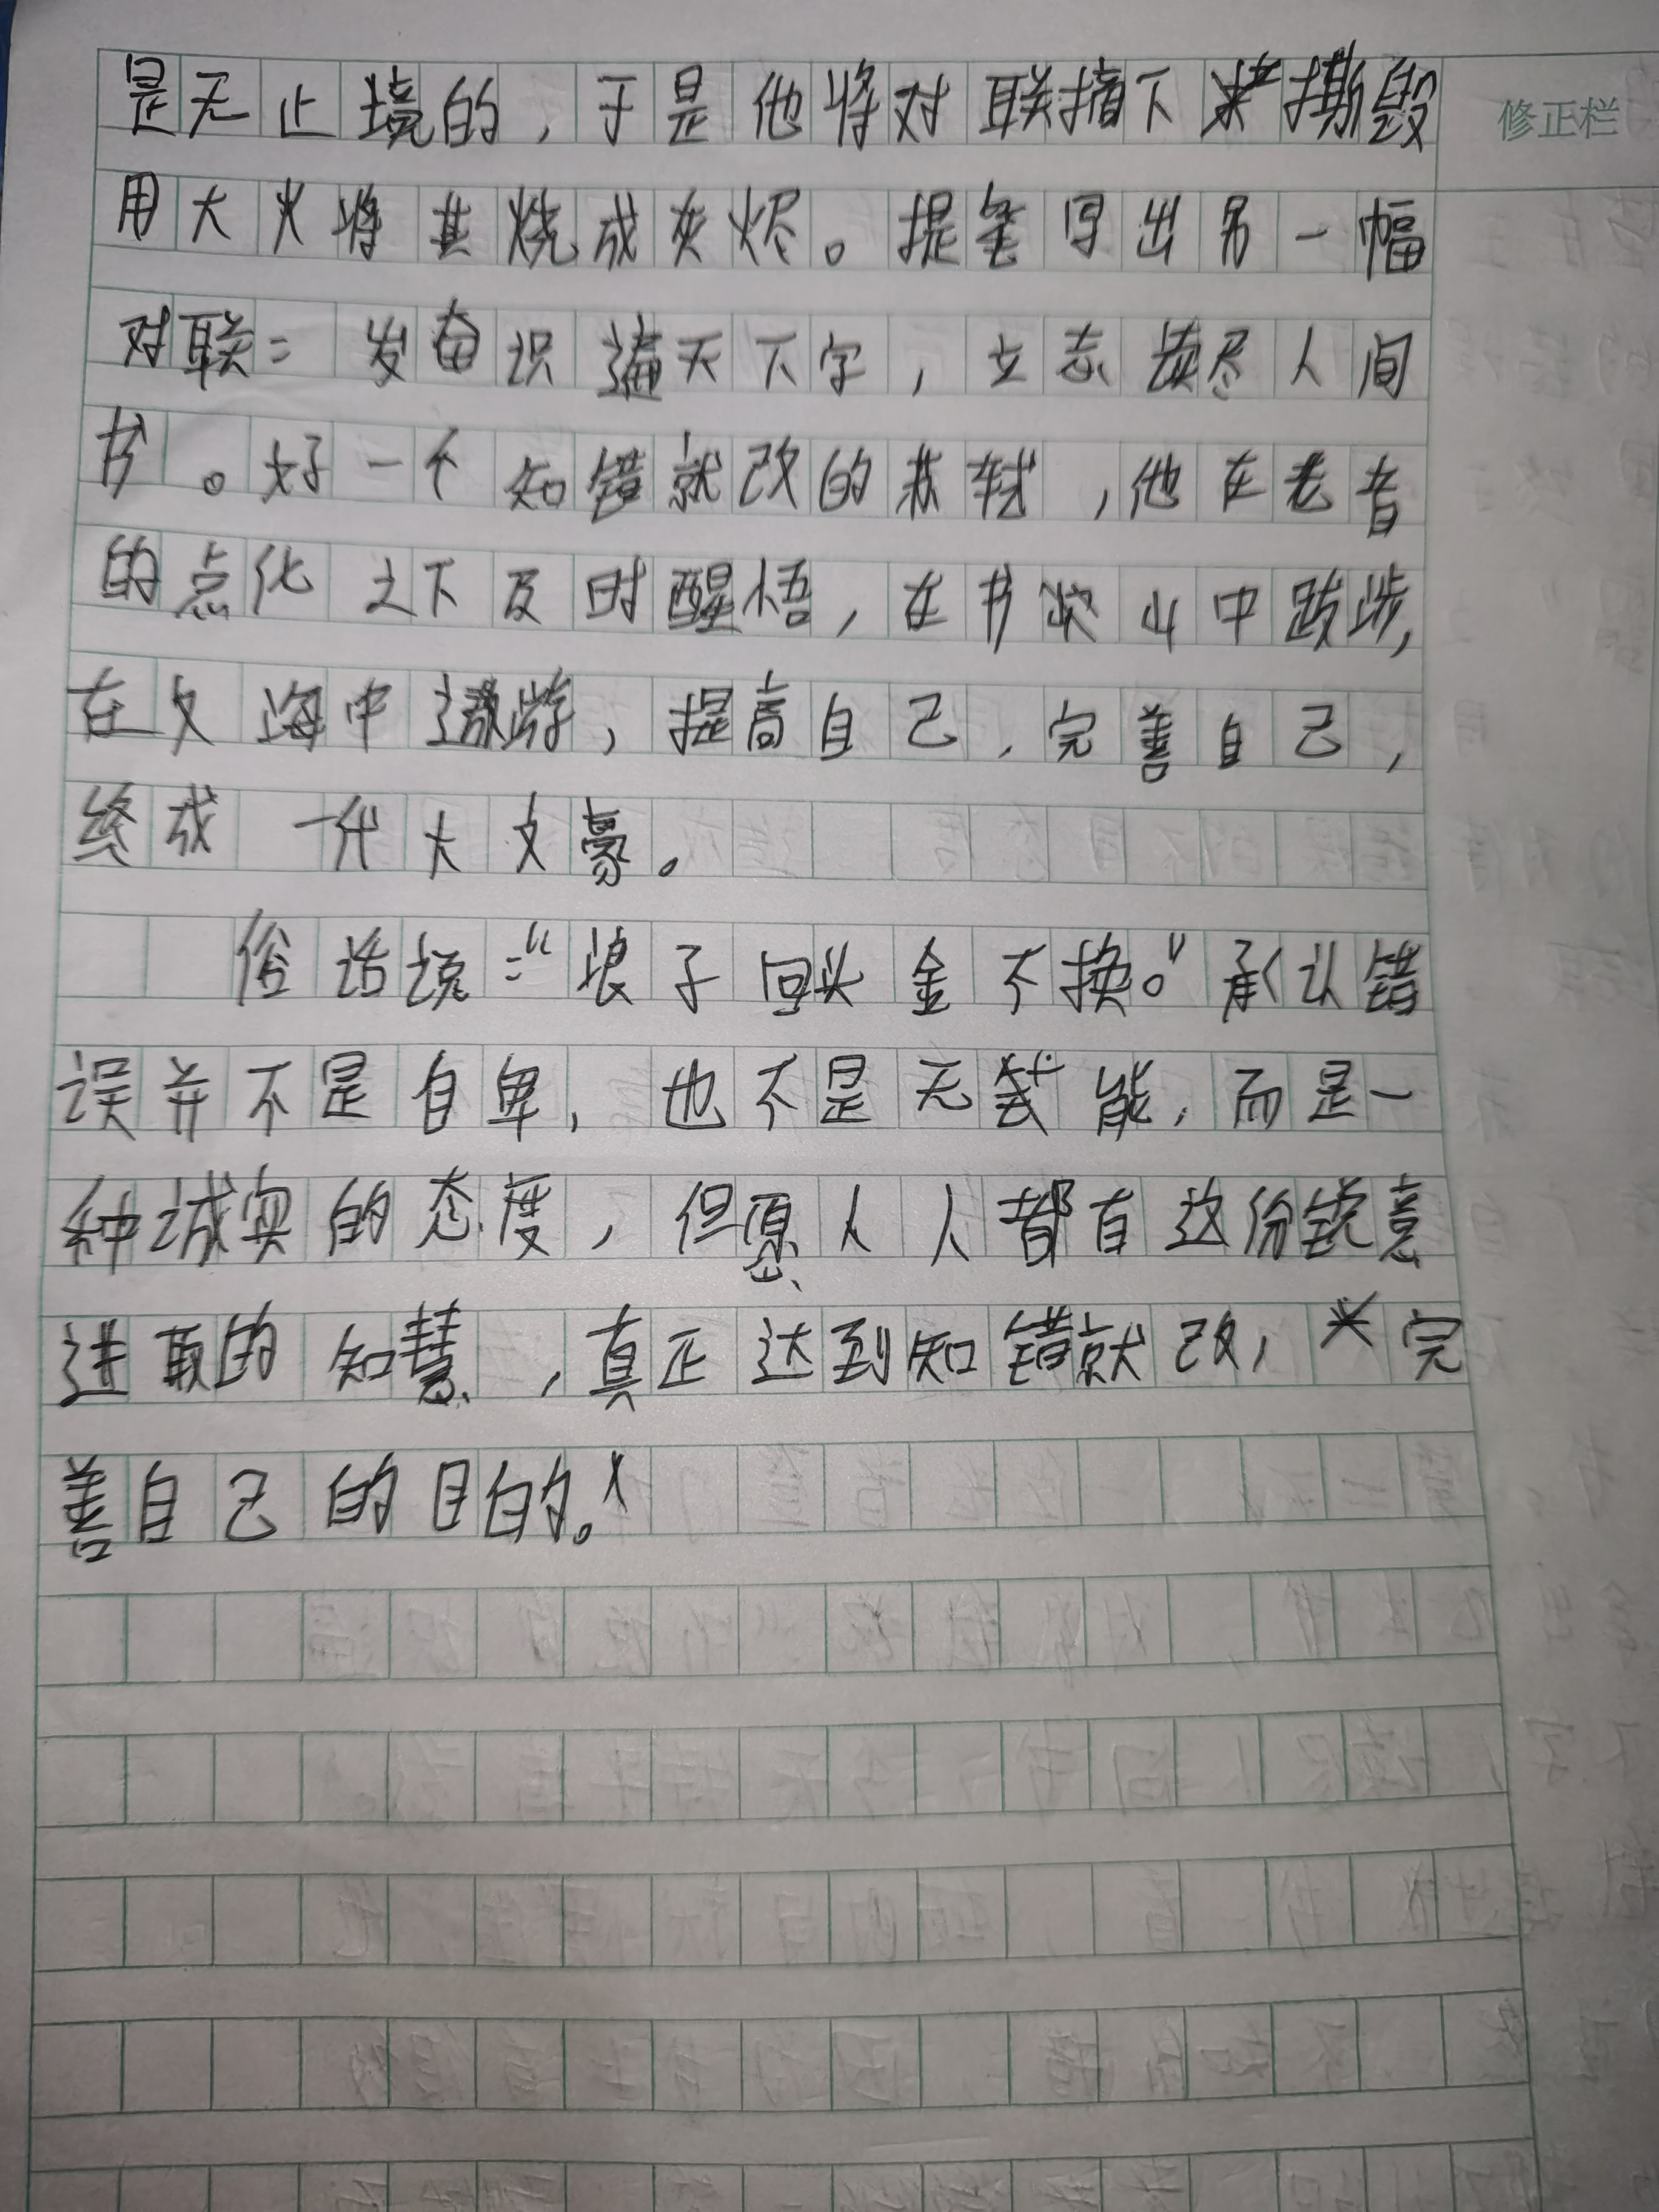 是无止境的，于是他将对联摘下来撕毁
修正栏
用大火将其烧成灰烬。提笔写出另一幅
对联：发奋识遍天下字，立志读尽人间
书。好一个知错就改的苏轼，他在老者
的点化之下及时醒悟，在书山中跋涉，
在文海中遨游，提高自己，完善自己，
终成一代大文豪。
俗话说：“浪子回头金不换。”承认错
误并不是自卑，也不是无能，而是一
种诚实的态度，但愿人人都有这份锐意
进取的知慧，真正达到知错就改，完
善自己的目的。